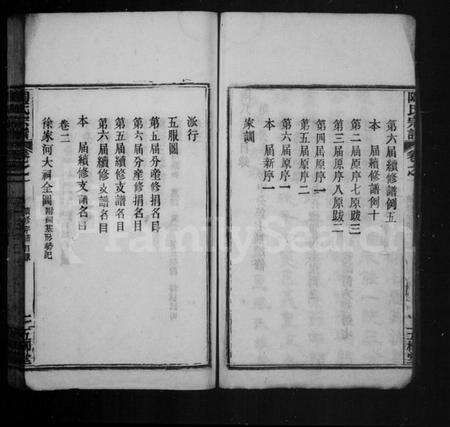 第六屆續修譜例五
本　屆續修譜例十
第二屆原序七原跋三
第三屆原序八原跋二
第四屆原序一
第五屆原序二
第六屆原序一
本　屆新序一
家訓
派行
五服圖
第五屆分產修捐名目
第六屆分產修捐名目
第五屆續修支譜名目
第六屆續修支譜名目
本　屆續修支譜名目
卷二
徐家河大祠全圖
FamilySearch